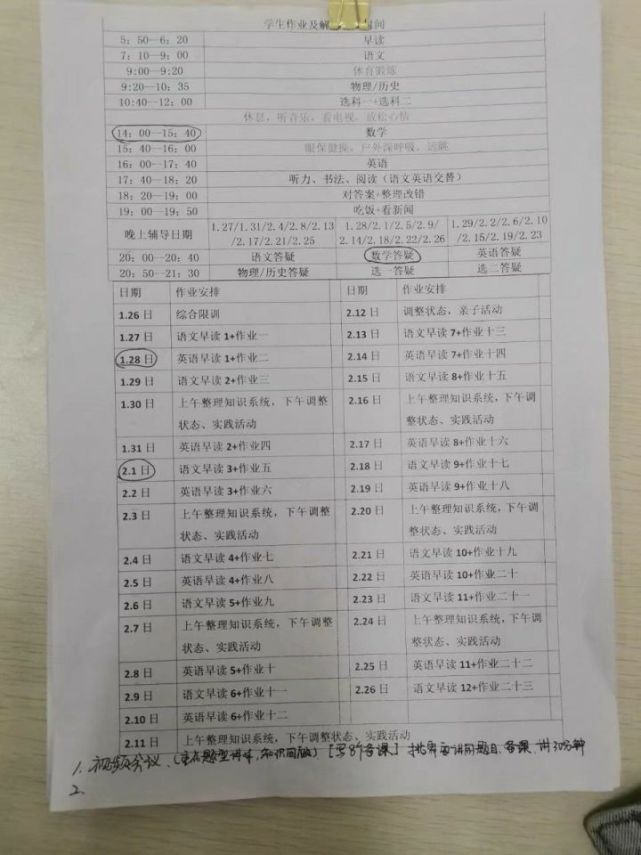 学生作业及解 间
5：50—6：20 早读
7：10—9：00 语文
9:00—9:20 体育锻炼
9:20—10：35 物理/历史
10:40—12：00 选科一+选科二
休息，听音乐，看电视，放松心情
14：00—15：40 数学
15：40—16：00 眼保健操，户外深呼吸、远眺
16：00—17：40 英语
17：40—18：20 听力、书法、阅读（语文英语交替）
18：20—19：00 对答案+整理改错
19：00—19：50 吃饭+看新闻
晚上辅导日期 1.27/1.31/2.4/2.8/2.13 1.28/2.1/2.5/2.9/ 1.29/2.2/2.6/2.10
/2.17/2.21/2.25 2.14/2.18/2.22/2.26 /2.15/2.19/2.23
20：00—20：40 语文答疑 数学答疑 英语答疑
20：50—21：30 物理/历史答疑 选一答疑 选二答疑
日期 作业安排 日期 作业安排
1.26 日 综合限训 2.12 日 调整状态，亲子活动
1.27 日 语文早读 1+作业一 2.13 日 语文早读 7+作业十三
1.28 日 英语早读 1+作业二 2.14 日 英语早读 7+作业十四
1.29 日 语文早读 2+作业三 2.15 日 语文早读 8+作业十五
1.30 日 上午整理知识系统，下午调整 2.16 日 上午整理知识系统，下午调
状态、实践活动 整状态、实践活动
1.31 日 英语早读 2+作业四 2.17 日 英语早读 8+作业十六
2.1 日 语文早读 3+作业五 2.18 日 语文早读 9+作业十七
2.2 日 英语早读 3+作业六 2.19 日 英语早读 9+作业十八
2.3 日 上午整理知识系统，下午调整 2.20 日 上午整理知识系统，下午调
状态、实践活动 整状态、实践活动
2.4 日 语文早读 4+作业七 2.21 日 语文早读 10+作业十九
2.5 日 英语早读 4+作业八 2.22 日 英语早读 10+作业二十
2.6 日 语文早读 5+作业九 2.23 日 语文早读 11+作业二十一
2.7 日 上午整理知识系统，下午调整 2.24 日 上午整理知识系统，下午调
状态、实践活动 整状态、实践活动
2.8 日 英语早读 5+作业十 2.25 日 英语早读 11+作业二十二
2.9 日 语文早读 6+作业十一 2.26 日 语文早读 12+作业二十三
2.10 日 英语早读 6+作业十二
2.11 日 上午整理知识系统，下午调整状态、实践活动
1. 视频会议、 题型讲解，知识回顾） 备课] 题目、备课、讲30分钟
2.